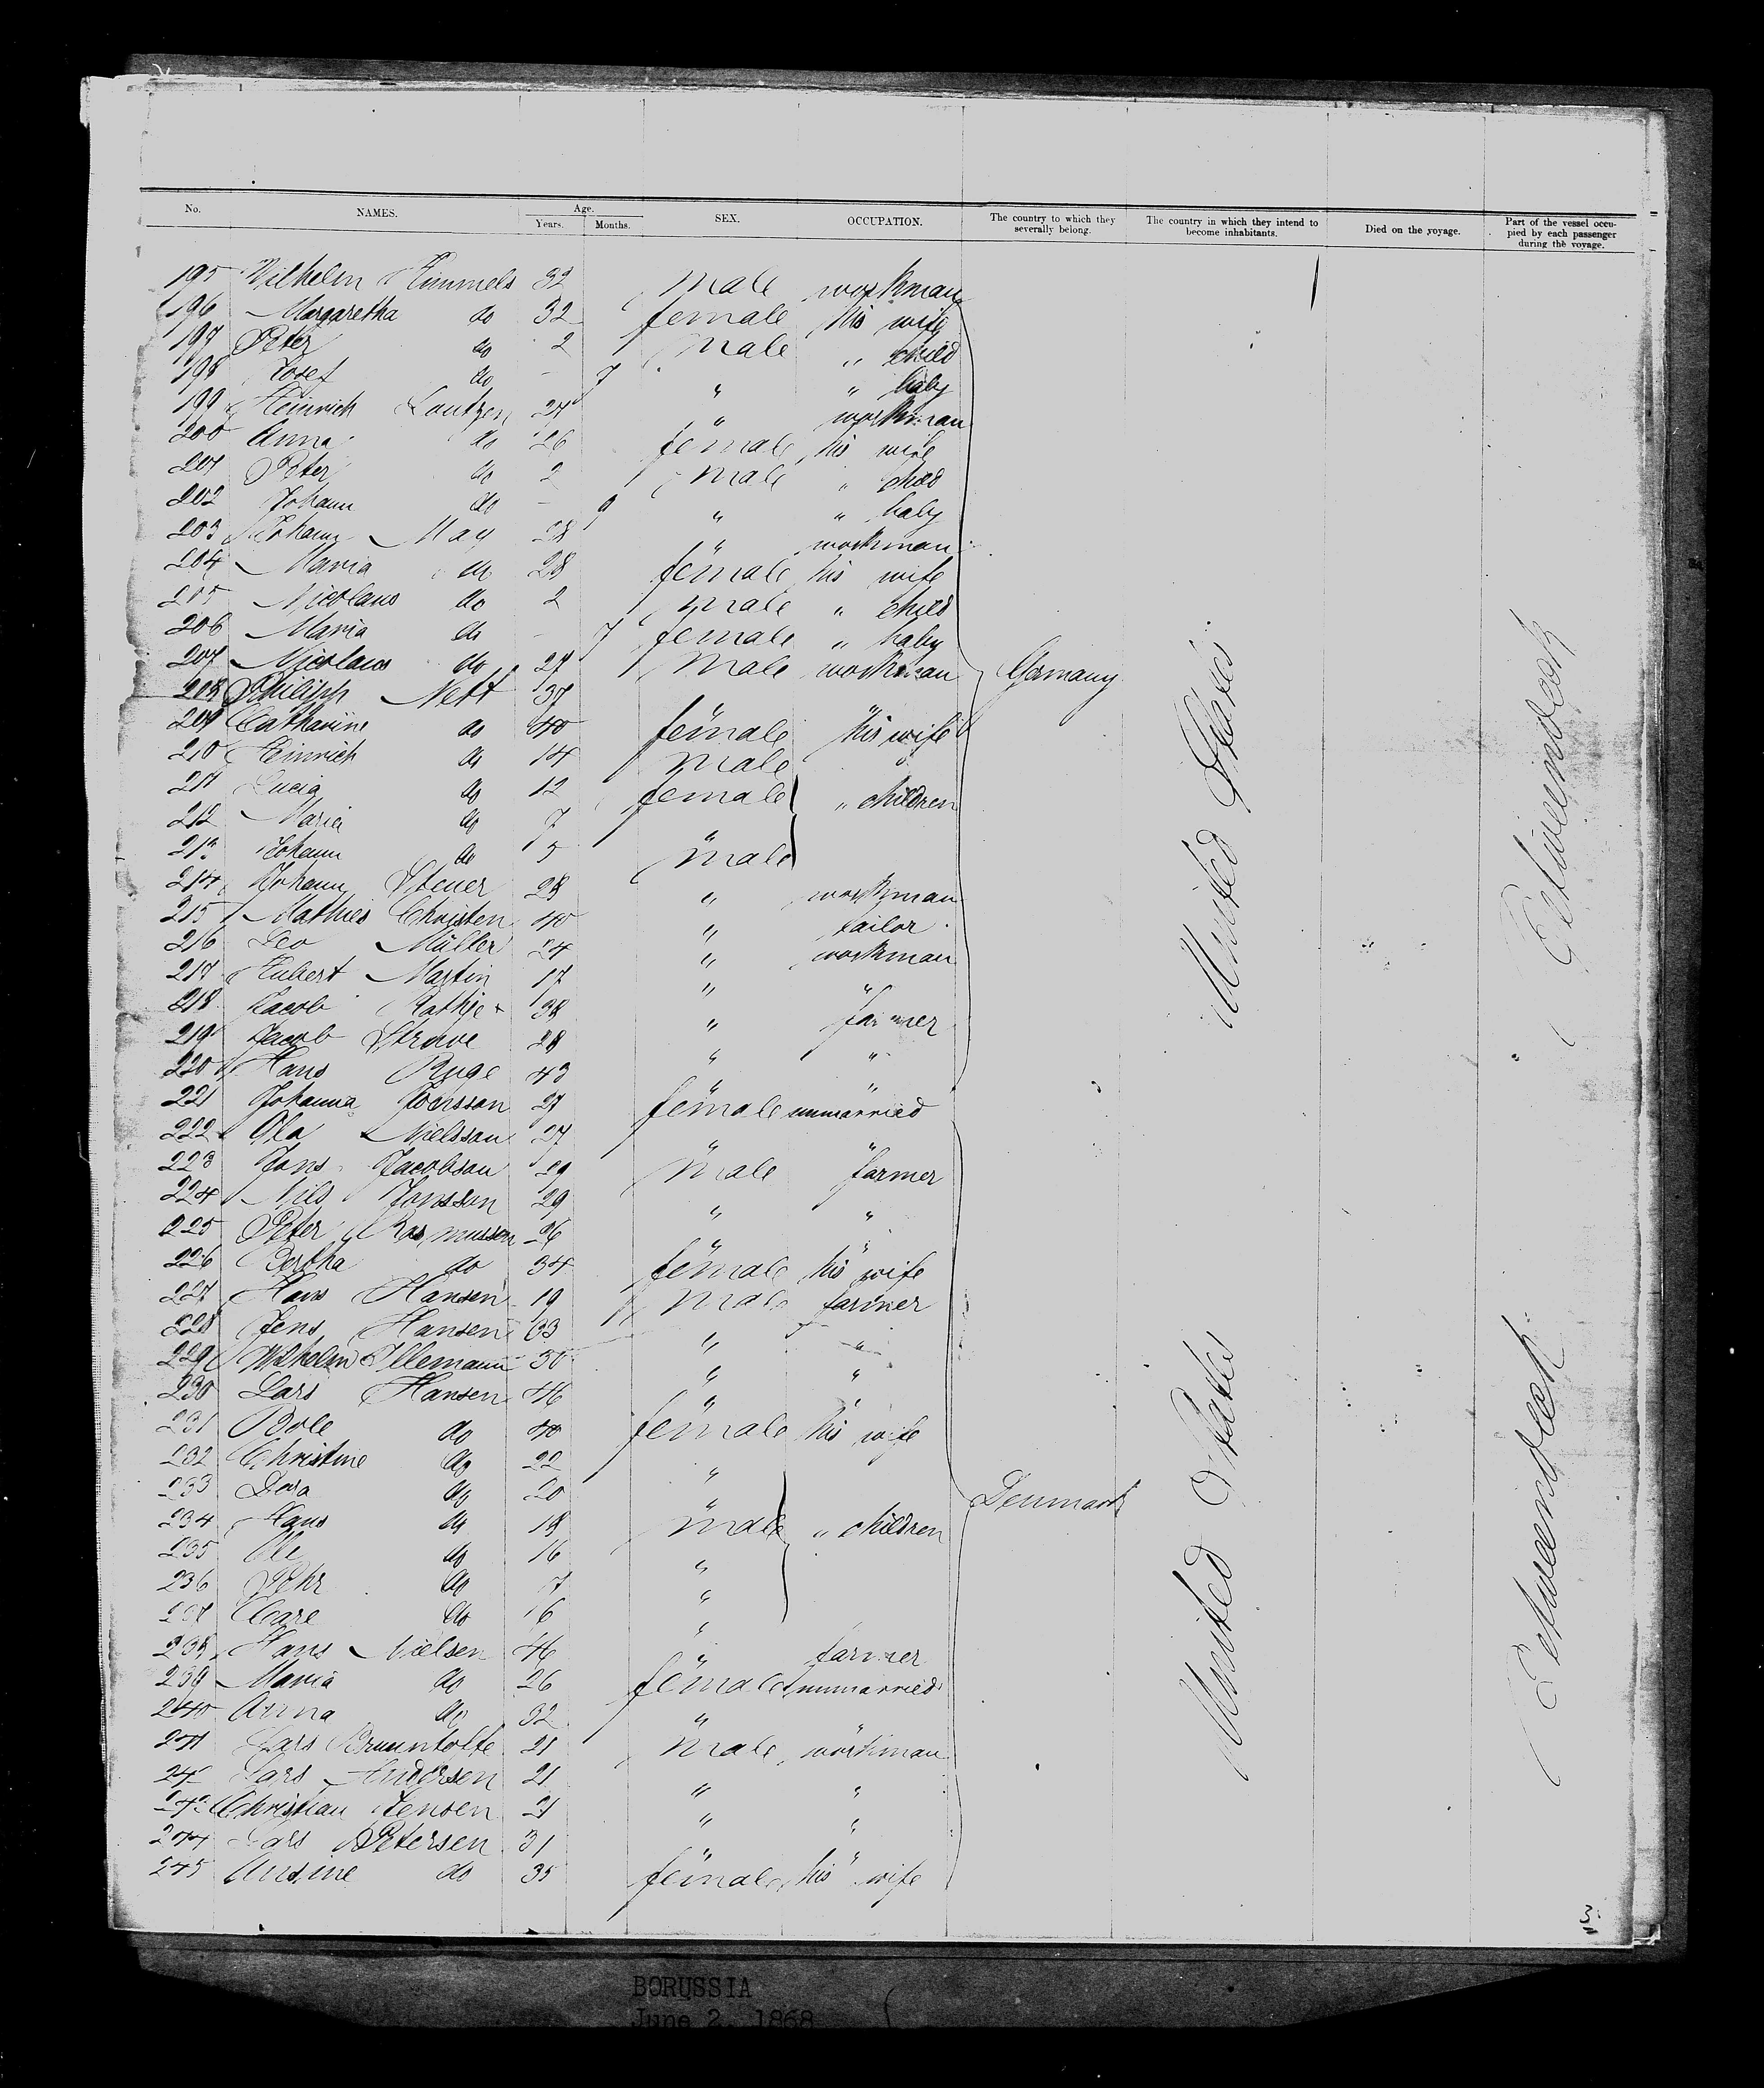 No. NAMES. Age. Years. Months. SEX. OCCUPATION. The country to which they severally belong. The country in which they intend to become inhabitants. Died on the voyage. Part of the vessel occupied by each passenger during the voyage.
195 Wilhelm Himmels 32 male workman
196 Margaretha do 32 female his wife
197 Peter do 2 male " child
198 Josef do - 7 " " baby
199 Heinrich Lautzen 27 " workman
200 Anna do 26 female his wife
201 Peter do 2 male " child
202 Johann do - 9 " " baby
203 Johann May 28 " workman
204 Maria do 28 female his wife
205 Nicolaus do 2 male " child
206 Maria do - 7 female " baby
207 Nicolaus do 27 male workman Germany
208 Philipp Nett 37 " "
209 Catharine do 40 female his wife
210 Heinrich do 14 male "
211 Lucia do 12 female " children
212 Maria do 7 "
213 Johann do 5 male
214 Johann Steuer 28 " workman
215 Mathies Christen 40 " tailor
216 Leo Müller 24 " workman
217 Hubert Martin 17 " "
218 Jacob Rathje 38 " farmer
219 Jacob Struve 28 " "
220 Hans Ruge 43 " "
221 Johanna Joensson 27 female unmarried
222 Ola Nielsson 27 " "
223 Jons Jacobson 29 male farmer
224 Nils Jonsson 29 " "
225 Peter Rasmussen 26 " "
226 Bertha do 34 female his wife
227 Hans Hansen 19 male farmer
228 Jens Hansen 63 " "
229 Wilhelm Illemann 30 " "
230 Lars Hansen 46 " "
231 Bole do 40 female his wife
232 Christine do 22 "
233 Dora do 20 " Denmark
234 Hans do 18 male " children
235 Ole do 16 "
236 Pehr do 7 "
237 do 6 "
238 Hans Nielsen 46 " farmer
239 Maria do 26 female unmarried
240 Anna do 32 "
241 Lars Bruuntofte 21 male workman
242 Lars Andersen 21 " "
243 Christian Jensen 21 " "
244 Lars Petersen 31 " "
245 do 35 female his wife
United States
Betweendeck
United States
Betweendeck
3.
BORUSSIA
June 2, 1868